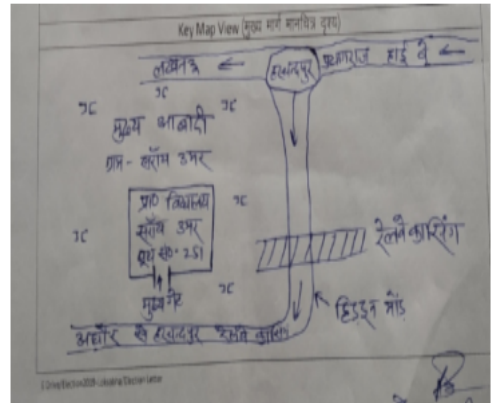 Key Map View (मुख्य मार्ग मानचित्र दृश्य)
लखनऊ ← हरचन्दपुर प्रयागराज हाई वे ←
मुख्य आबादी
ग्राम - सरॉय उमर
प्रा० विद्यालय
सरॉय उमर
बूथ सं०- 251
मुख्य गेट
रेलवे क्रासिंग
हिडइन मोड़
से हरचन्दपुर